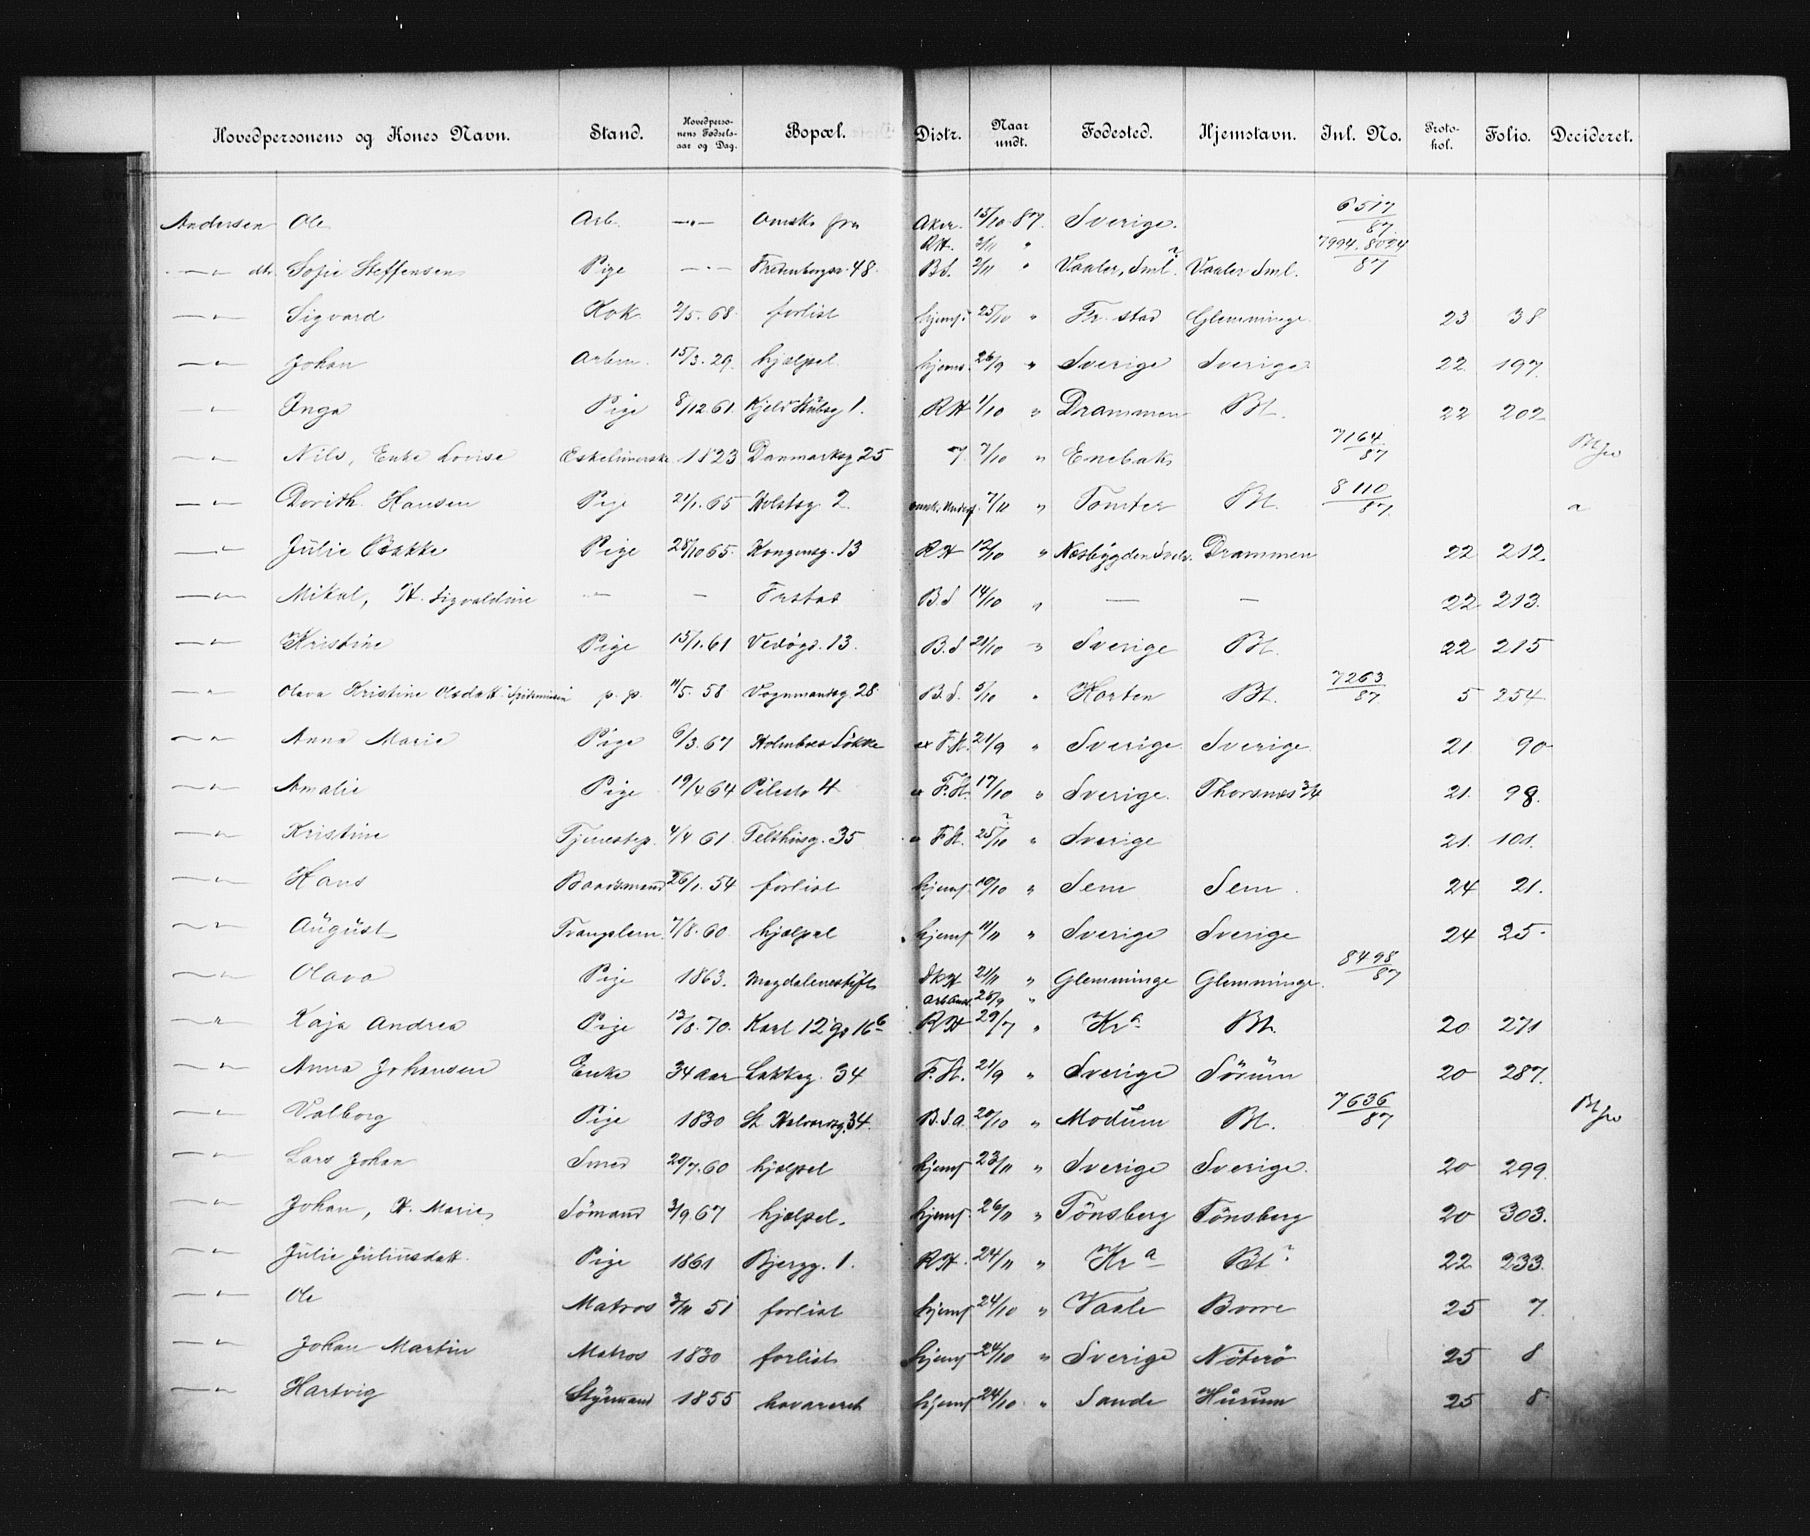 Hovedpersonens og Kones Navn. Stand. Hovedpersonens Fødselsaar og Dag. Bopæl. Distr. Naar undt. Fødested. Hjemstavn. Inl. No. Protokol. Folio. Decideret.
Andersen Ole Arb. —"— Omsk. fra Aker. 15/10 87. Sverige. 6517/87
RH. 2/11 " 7994. 8024/87
—"— dtr. Sofie Steffensen Pige —"— Fredensborgv. 48 B.S. 2/11 " Vaaler, Sml? Vaaler Sml.
—"— Sigvard Kok 2/5. 68. forlist hjemf. 25/10 " Fr. stad Glemminge 23 38
—"— Johan Arbm. 15/3. 29. hjælpel. hjems. 26/9 " Sverige Sverige 22 197.
—"— Inga Pige 8/12 61. Kjeld Stubsg 1. RH 1/10 " Drammen Bt. 22 202
—"— Nils, Enke Lovise 1823 Danmarksg 25 7. 7/10 " Enebak 7164/87
—"— Dorith. Hansen Pige 21/1. 65 Holstsg. 2. 7/10 " Tomter Bt. 8110/87 a
—"— Julie Bakke Pige 28/10 65. Kongensg. 13 RH 12/10 " Næsbygden Drammen 22 212
—"— Mikal, H. Sigvaldine — — Frstad B.S 14/10 " — — 22 213.
—"— Kristine Pige 15/1. 61 Vedøgd. 13. B.S 21/10 " Sverige Bt. 22 215
—"— Olava Kristine Olsdatt. p. p. 11/5. 58 Vognmandsg. 28 B.S. 5/10 " Horten Bt. 7263/87 5 254
—"— Anna Marie Pige 6/3. 67 Holmboes Løkke ex F.H. 21/9 " Sverige Sverige 21 90
—"— Amalie Pige 19/4 64 Pilestr 4 " F.H. 17/10 " Sverige. Thorsnes 21. 98.
—"— Kristine Tjenestep. 4/4 61. Telthusg. 35 " F.H. 25/10? " Sverige 21. 101.
—"— Hans Baadsmand 26/1. 54 forlist hjemf. 10/10 " Sem Sem 24 21.
—"— August 7/8. 60. hjælpel hjemf 11/11 " Sverige Sverige 24 25.
—"— Olava Pige 1863. Magdalenestift. 21/11 " Glemminge Glemminge. 8498/87
28/9 "
—"— Kaja Andrea Pige 12/8. 70. Karl 12 gd 16 b RH 29/7 " Kr.a Bt. 20 271
—"— Anna Johansen Enke 34 aar Lakkeg. 34 F.H. 21/9 " Sverige Sørum 20 287.
—"— Valborg Pige 1830 St. Halvardsg. 34. B.S.a. 20/10 " Modum Bt. 7636/87
—"— Lars Johan Smed 20/7. 60 hjælpel hjemf 23/11 " Sverige Sverige. 20 299
—"— Johan, H. Marie Sømand 3/9 67 hjælpel. hjemf. 26/11 " Tønsberg Tønsberg 20 303.
—"— Julie Juliusdatt. Pige 1861 Bjergg. 1. RH. 24/11 " Kr.a Bt? 22 233.
—"— Ole Matros 3/11 51 forlist hjemf 24/10 " Vaale Borre 25 7.
—"— Johan Martin Matros 1830 forlist hjemf 24/10 " Sverige Nøterø 25 8
—"— Hartvig Styrmand 1855 havareret hjemf 24/10 " Sande Hurum 25 8